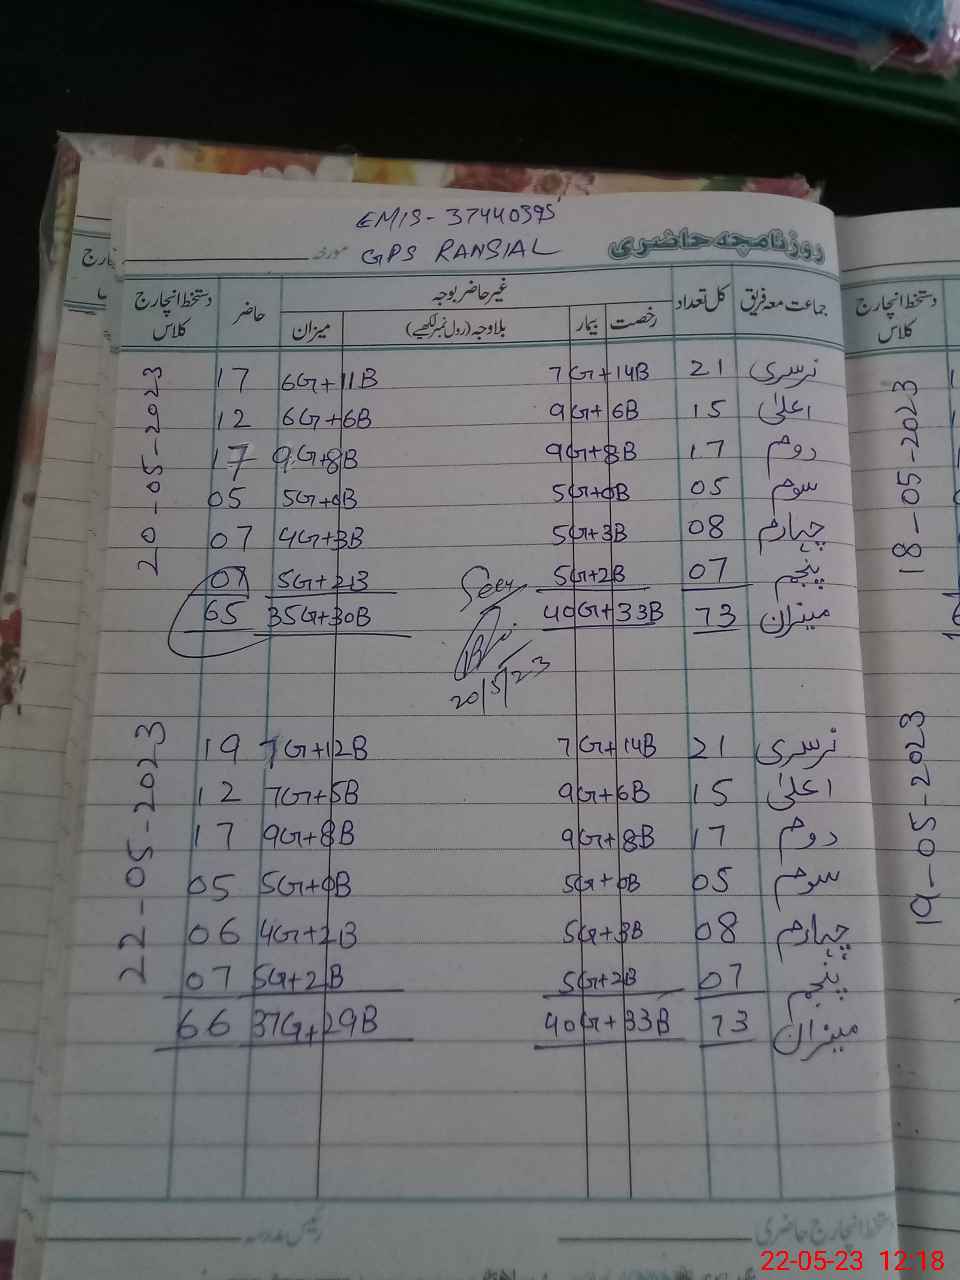 EMIS-37440395
روزنامچہ حاضری
مورخہ GPS RANSIAL
جماعت معہ فریق کل تعداد غیر حاضر بوجہ حاضر دستخط انچارج کلاس
رخصت بیمار بلاوجہ (رول نمبر لکھیے) میزان
20-05-2023
نرسری 21 7G+14B 6G+11B 17
اعلیٰ 15 9G+6B 6G+6B 12
دوم 17 9G+8B 9G+8B 17
سوم 05 5G+0B 5G+0B 05
چہارم 08 5G+3B 4G+3B 07
پنجم 07 5G+2B 5G+2B 07
میزان 73 40G+33B 35G+30B 65
Seen
20/5/23
22-05-2023
نرسری 21 7G+14B 7G+12B 19
اعلیٰ 15 9G+6B 7G+5B 12
دوم 17 9G+8B 9G+8B 17
سوم 05 5G+0B 5G+0B 05
چہارم 08 5G+3B 4G+2B 06
پنجم 07 5G+2B 5G+2B 07
میزان 73 40G+33B 37G+29B 66
دستخط انچارج حاضری رئیس مدرسہ
دستخط انچارج
کلاس
18-05-2023
19-05-2023
22-05-23 12:18